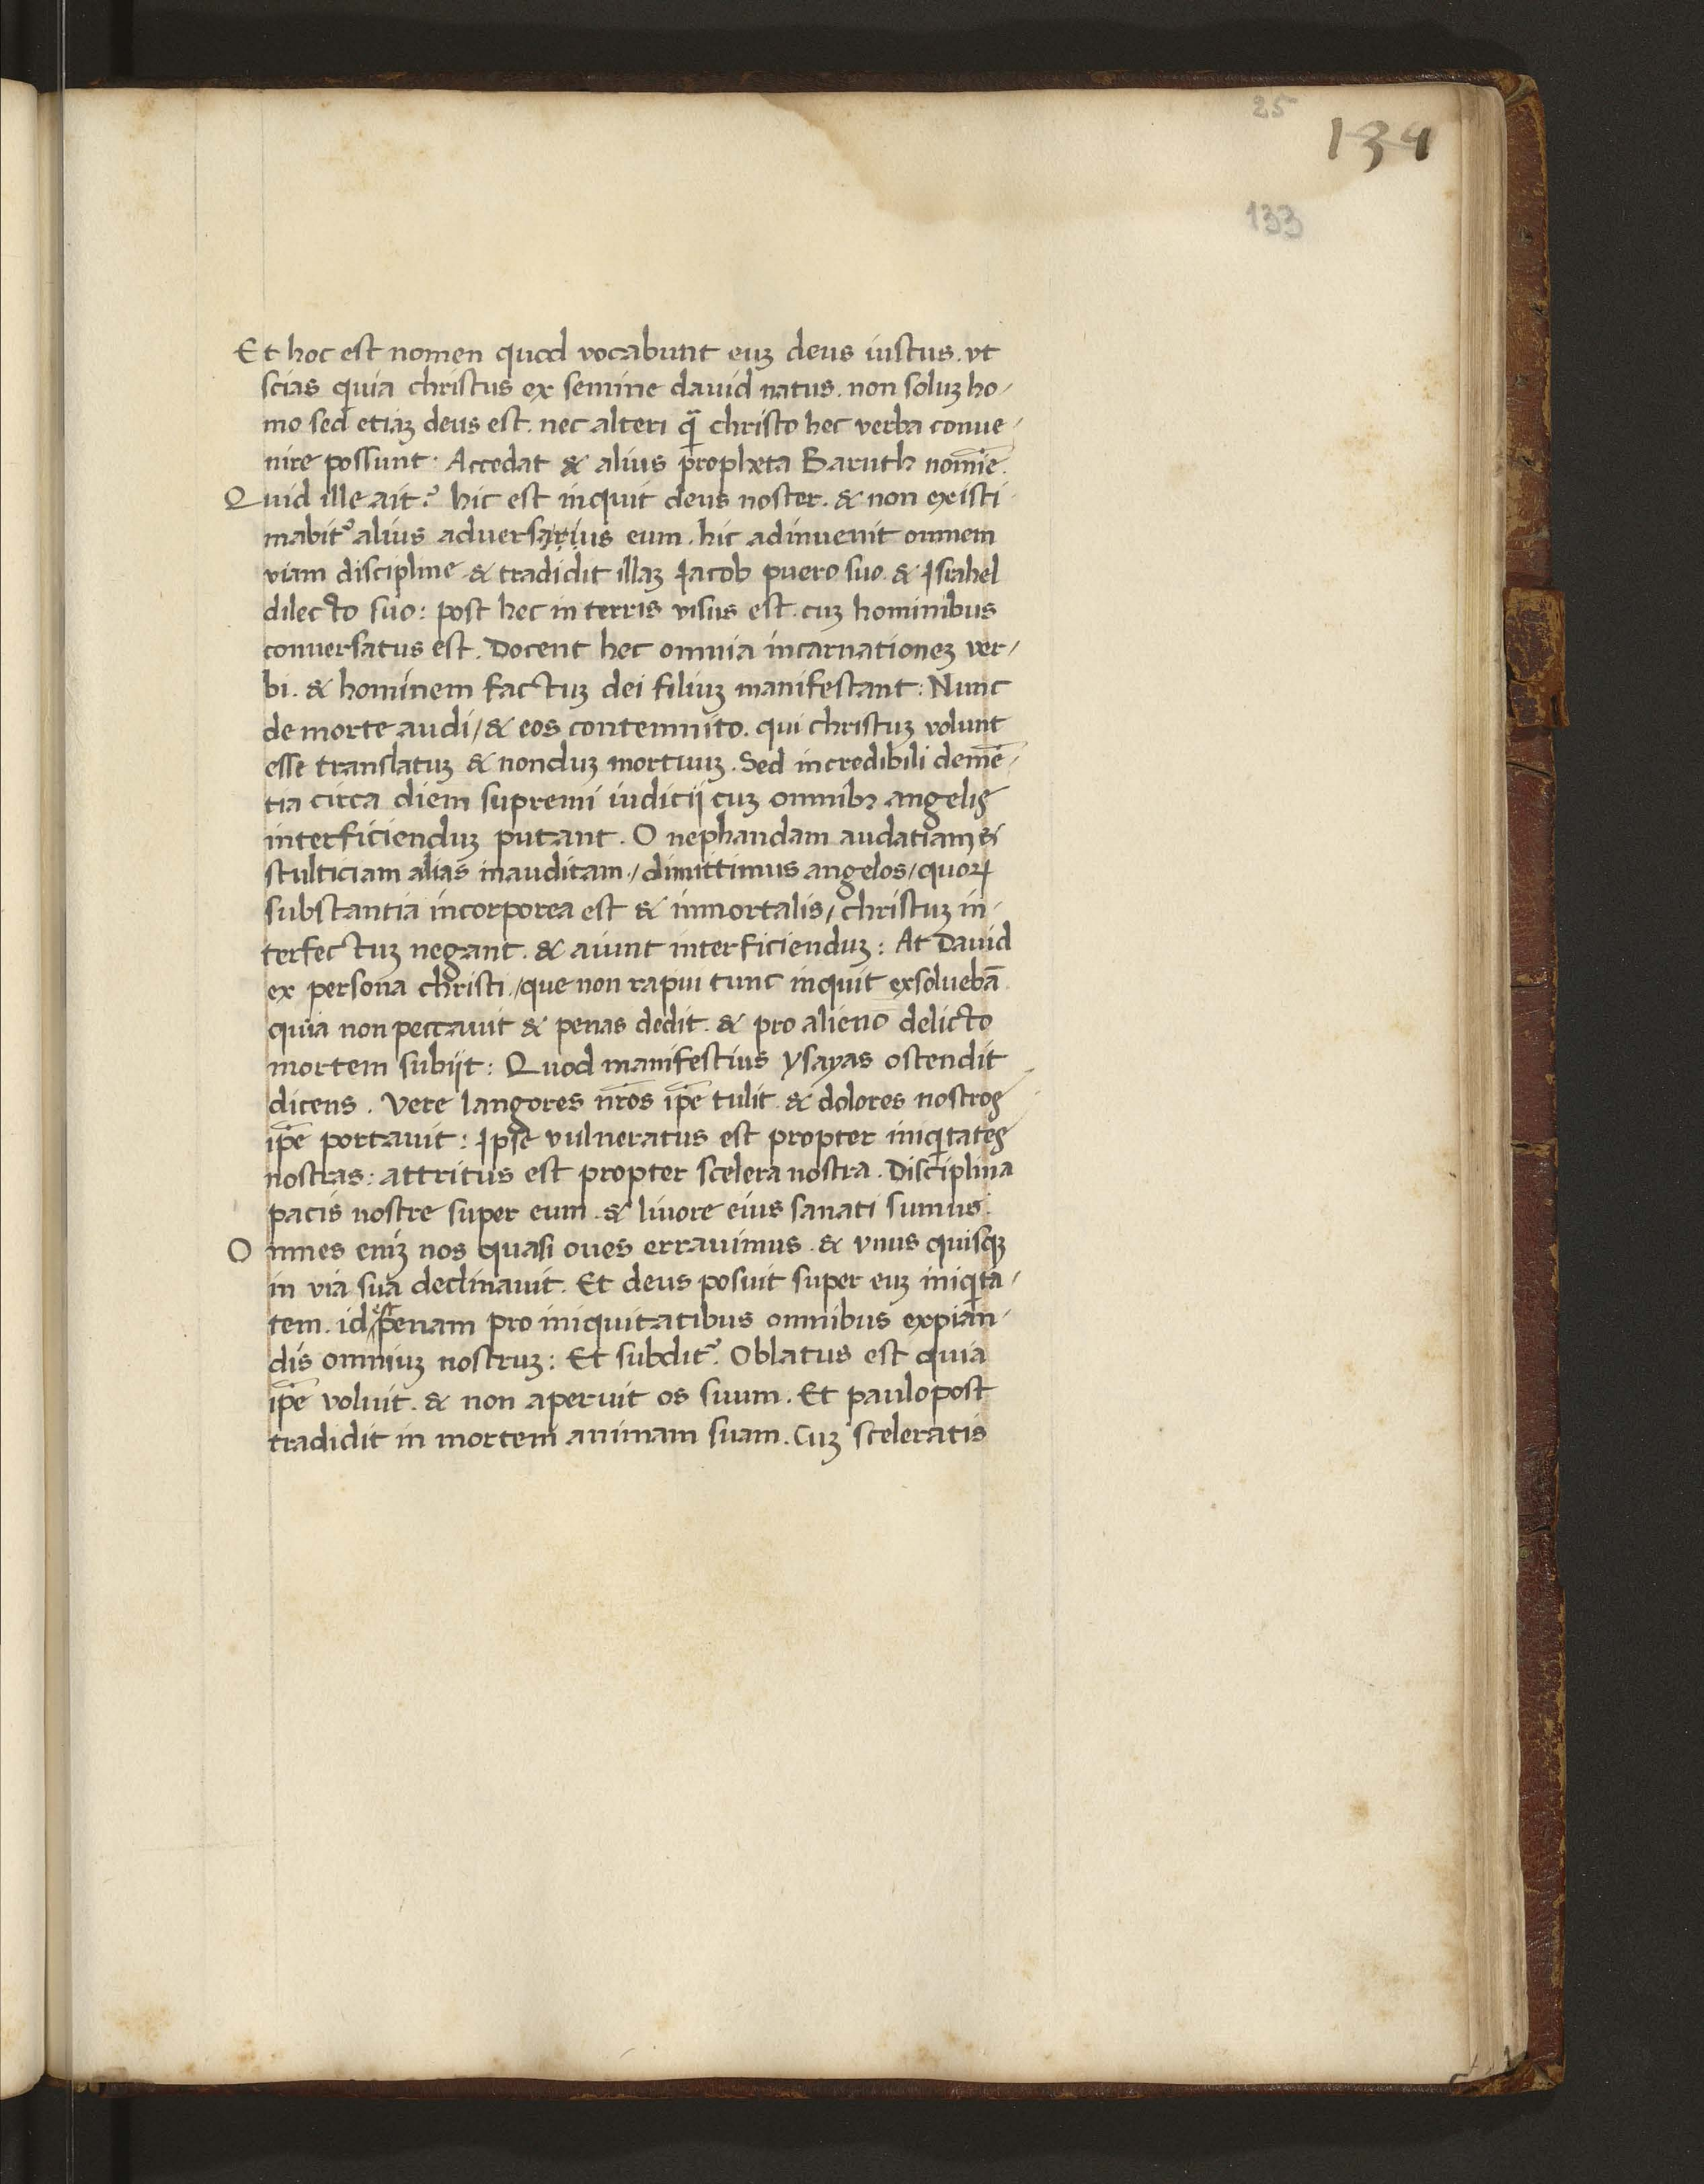 25
134
133
Et hoc est nomen quod vocabunt euʒ deus iustus. vt
scias quia christus ex semine dauid natus. non soluʒ ho-
mo sed etiaʒ deus est. nec alteri qͣ̄ christo hec verba conue-
nire possunt. Accedat & alius propheta Baruth nomīe.
Quid ille ait? hic est inquit deus noster. & non existi-
mabit᷑ alius aduersarius eum. hic adinuenit omnem
viam discipline & tradidit illaʒ Jacob puero suo. & Israhel
dilecto suo: post hec in terris visus est. cuʒ hominibus
conuersatus est. Docent hec omnia incarnationeʒ ver-
bi. & hominem factuʒ dei filiuʒ manifestant: Nunc
de morte audi / & eos contemnito. qui christuʒ volunt
esse translatuʒ & nonduʒ mortuuʒ. Sed incredibili demē-
tia circa diem supremi iudicij cuʒ omnibꝫ angelis
interficienduʒ putant. O nephandam audatiam &
stulticiam alias inauditam / dimittimus angelos / quoꝝ
substantia incorporea est & inmortalis / christuʒ in-
terfectuʒ negant. & aiunt interficienduʒ: At Dauid
ex persona christi / que non rapui tunc inquit exsoluebā
quia non peccauit & penas dedit. & pro alieno delicto
mortem subijt: Quod manifestius ysayas ostendit
dicens. Vere langores nr̄os ip̄e tulit. & dolores nostros
ip̄e portauit: Ipse vulneratus est propter iniqͥtates
nostras: attritus est propter scelera nostra. Disciplina
pacis nostre super eum. & liuore eius sanati sumus.
Omnes eniʒ nos quasi oues errauimus. & vnus quisqꝫ
in via sua declinauit. Et deus posuit super euʒ iniqͥta-
tem. id est penam pro iniquitatibus omnibus expian-
dis omniuʒ nostruʒ: Et subdit᷑. Oblatus est quia
ip̄e voluit. & non aperuit os suum. Et paulopost
tradidit in mortem animam suam. Cuʒ sceleratis